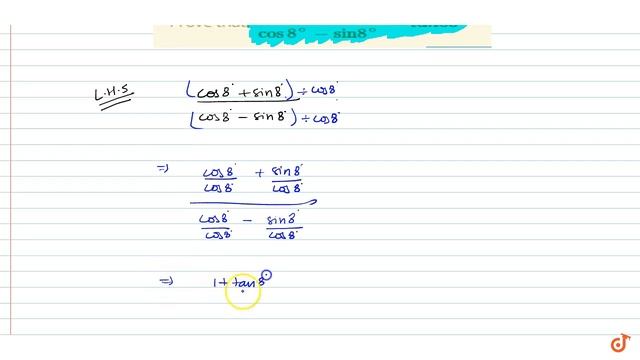 cos 8° − sin8°
L.H.S (cos8° + sin8°) ÷ cos8°
(cos8° − sin8°) ÷ cos8°
⇒ cos8°/cos8° + sin8°/cos8°
cos8°/cos8° − sin8°/cos8°
⇒ 1 + tan8°